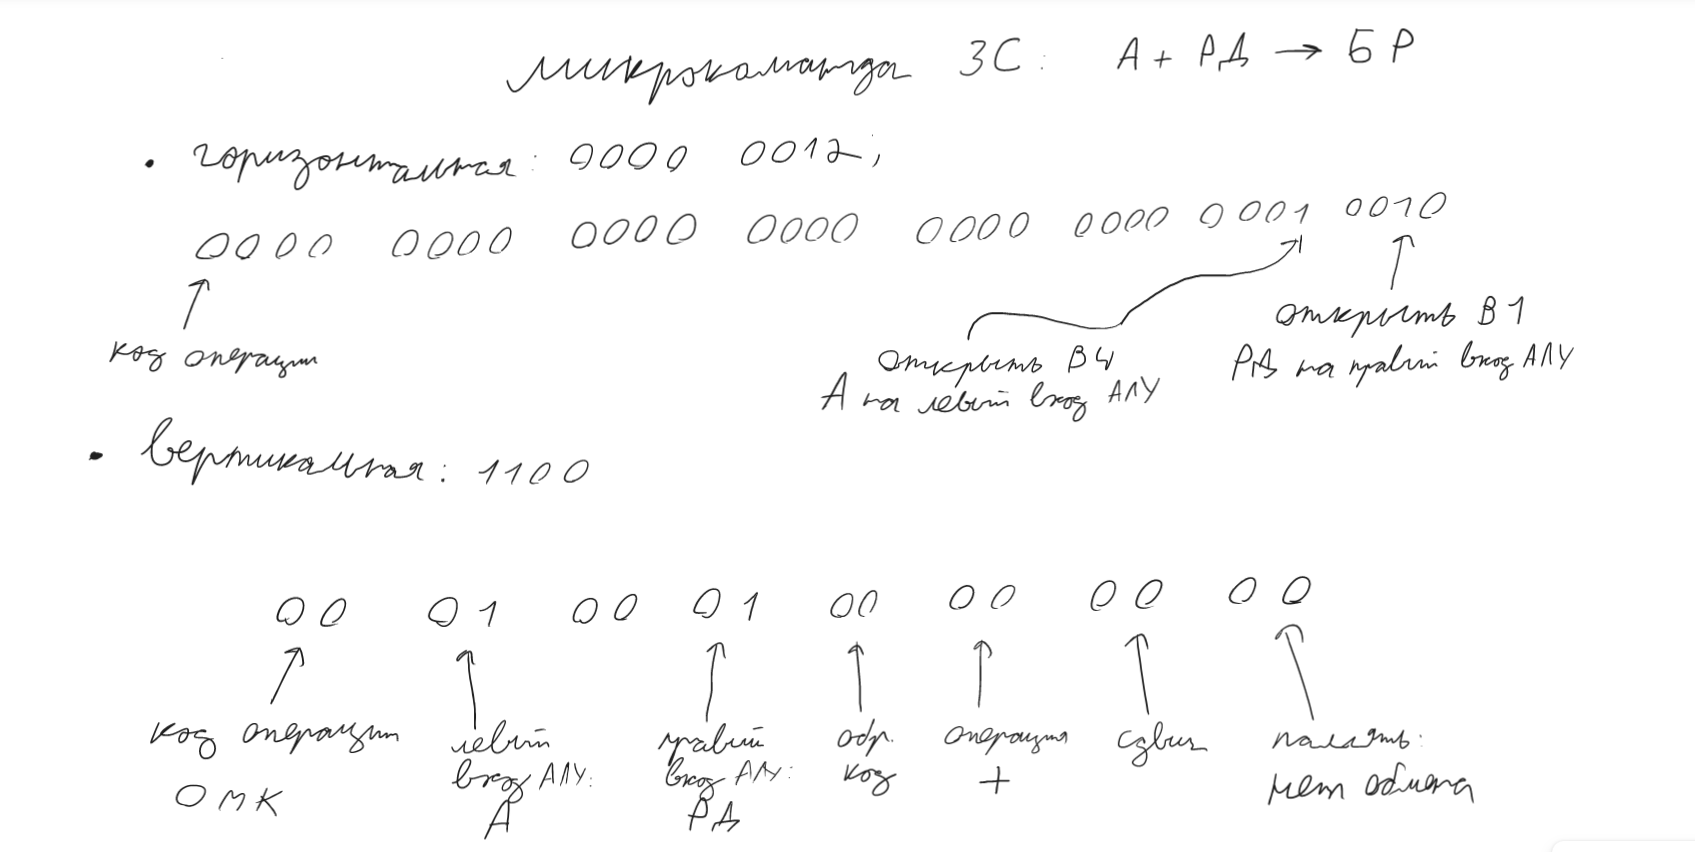 микрокоманда 3C: А + РД → БР
• горизонтальная: 0000 0012;
0000 0000 0000 0000 0000 0000 0001 0010
код операции
открыть В4
А на левый вход АЛУ
открыть В1
РД на правый вход АЛУ
• вертикальная: 1100
00 01 00 01 00 00 00 00
код операции
ОМК
левый
вход АЛУ:
А
правый
вход АЛУ:
РД
обр.
код
операция
+
сдвиг
память:
нет обмена